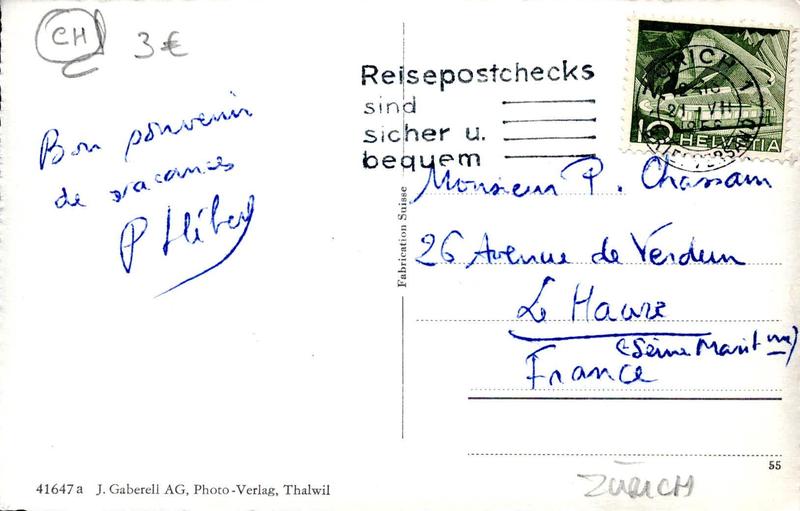 CH
3 €
Bon souvenir
de vacances
P Hébert
Reisepostchecks
sind
sicher u.
bequem
ZÜRICH 1
VII
1956
BRIEFVERSAND
10
HELVETIA
Fabrication Suisse
Monsieur P. Chassain
26 Avenue de Verdun
Le Havre
(Seine Marit me)
France
55
41647a J. Gaberell AG, Photo-Verlag, Thalwil
ZÜRICH